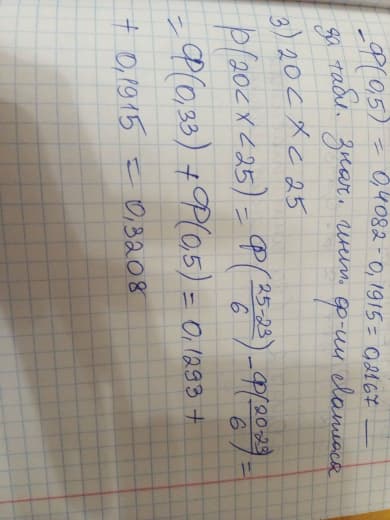 -Ф(0,5) = 0,4082 - 0,1915 = 0,2167 —
за табл. знач. інт. ф-ии Лапласа
3) 20 < X < 25
P(20 < X < 25) = Ф(25-23/6) - Ф(20-23/6) =
= Ф(0,33) + Ф(0,5) = 0,1293 +
+ 0,1915 = 0,3208